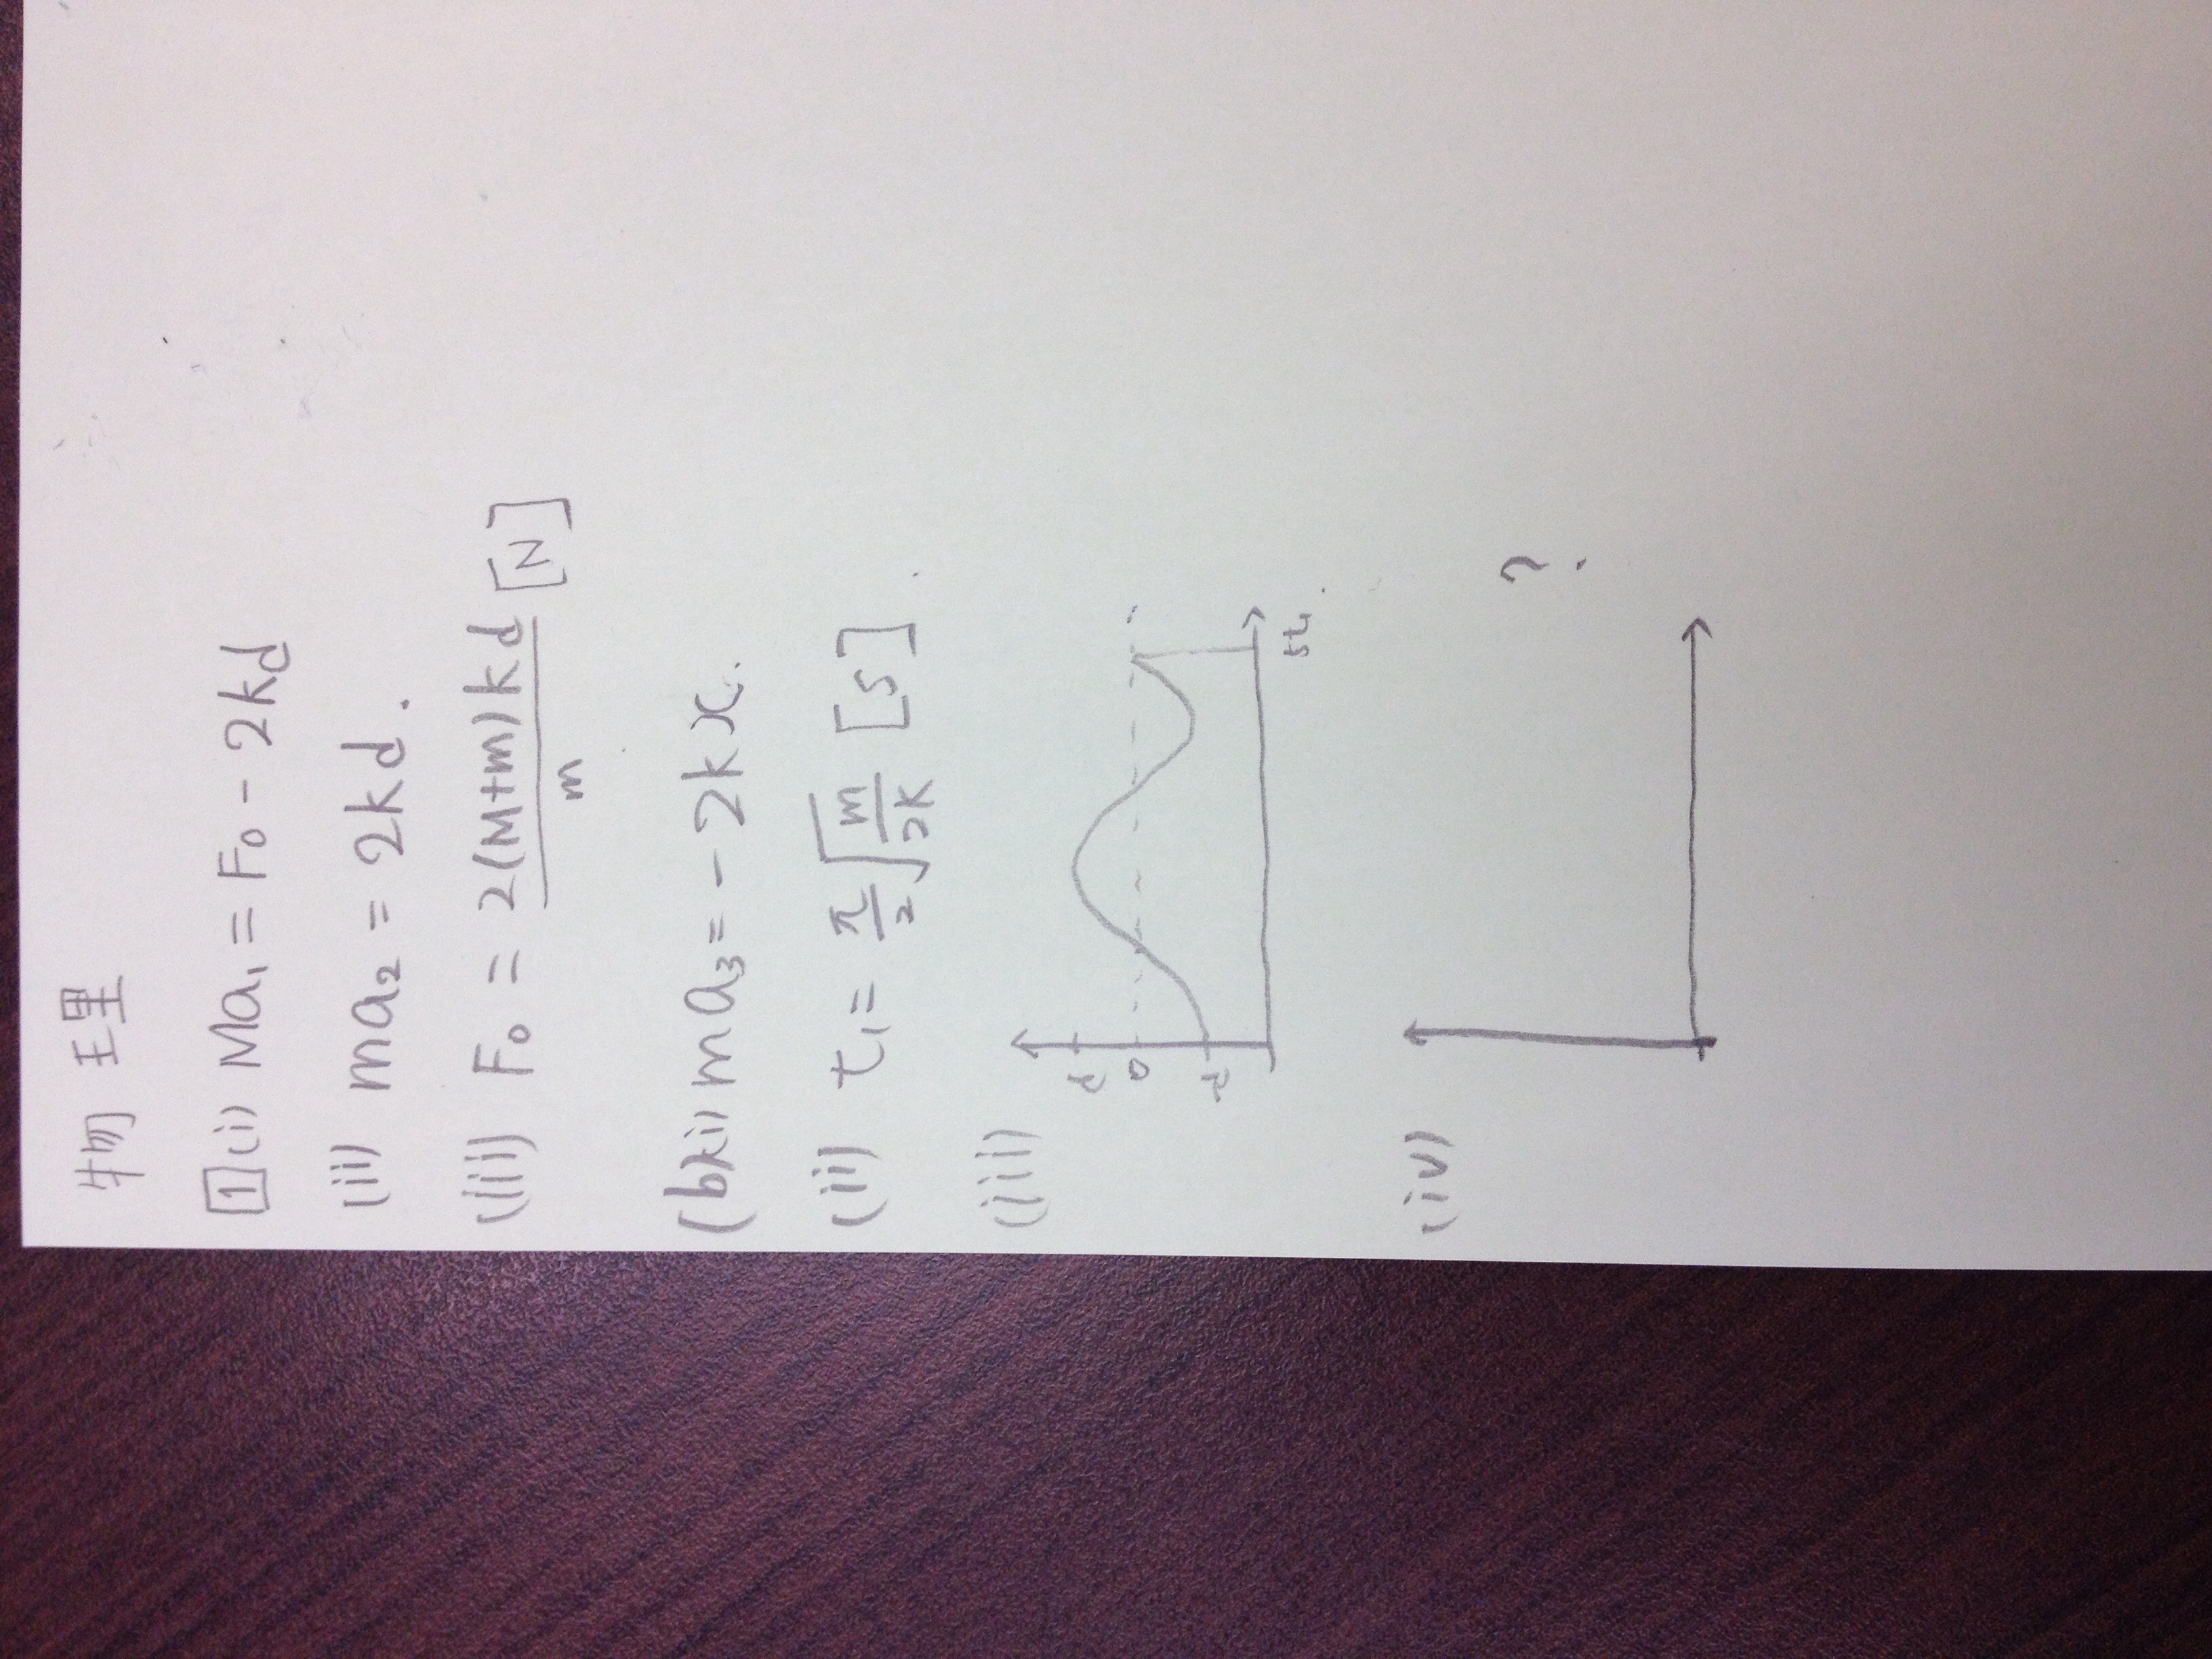 物理
1 (i) Ma₁ = F₀ - 2kd
(ii) ma₂ = 2kd.
(iii) F₀ = 2(M+m)kd/m [N]
(b)(i) ma₃ = -2kx.
(ii) t₁ = π/2 √(m/2k) [s]
(iii)
d
0
-d
5t₁
(iv)
?